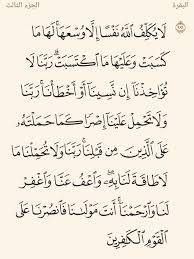 البقرة الجزء الثالث
لَا يُكَلِّفُ ٱللَّهُ نَفْسًا إِلَّا وُسْعَهَا ۚ لَهَا مَا
كَسَبَتْ وَعَلَيْهَا مَا ٱكْتَسَبَتْ ۗ رَبَّنَا لَا
تُؤَاخِذْنَآ إِن نَّسِينَآ أَوْ أَخْطَأْنَا ۚ رَبَّنَا
وَلَا تَحْمِلْ عَلَيْنَآ إِصْرًا كَمَا حَمَلْتَهُۥ
عَلَى ٱلَّذِينَ مِن قَبْلِنَا ۚ رَبَّنَا وَلَا تُحَمِّلْنَا مَا
لَا طَاقَةَ لَنَا بِهِۦ ۖ وَٱعْفُ عَنَّا وَٱغْفِرْ
لَنَا وَٱرْحَمْنَآ ۚ أَنتَ مَوْلَىٰنَا فَٱنصُرْنَا عَلَى
ٱلْقَوْمِ ٱلْكَٰفِرِينَ